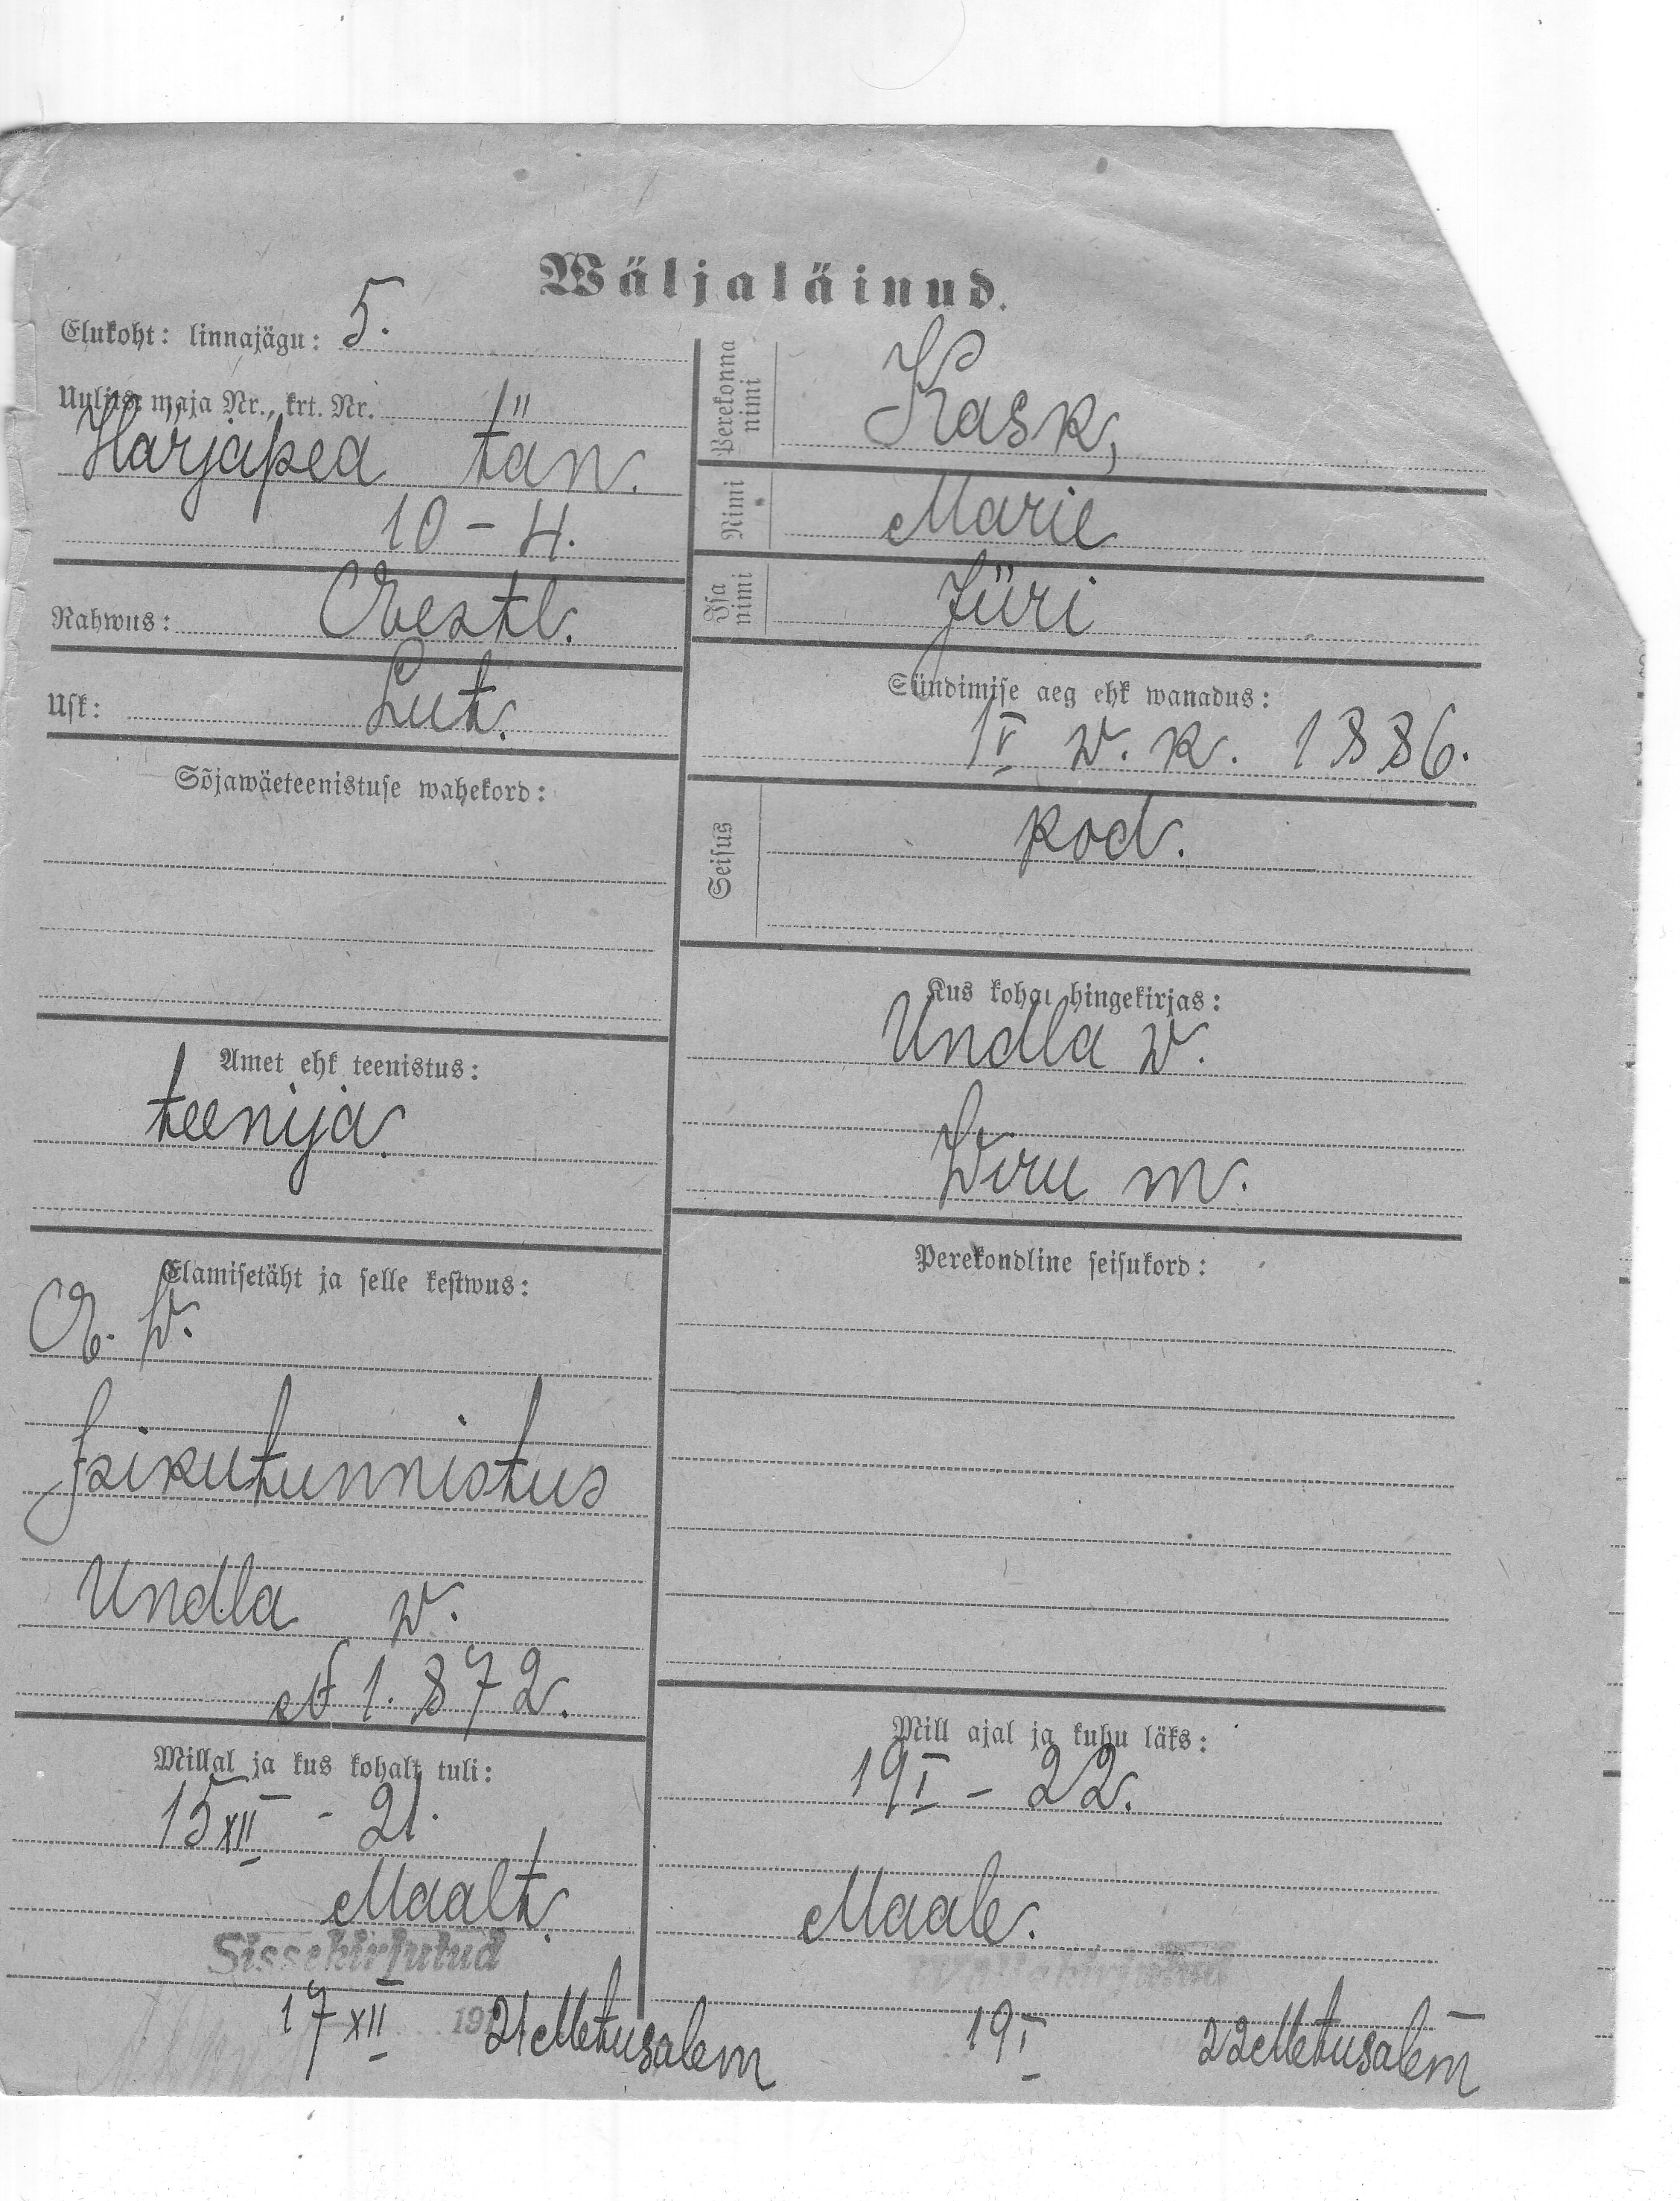 Wäljaläinud.
Elukoht: linnajägu: 5.
Uulits, maja Nr., krt. Nr.
Härjapea tän.
10 – 4.
Rahwus: Eestl.
Usk: Lut.
Sõjawäeteenistuse wahekord:
Amet ehk teenistus:
teenija
Elamisetäht ja selle kestwus:
E. W.
Isikutunnistus
Undla w.
№ 1.872.
Millal ja kus kohalt tuli:
15 XII – 21.
Maalt.
Sissekirjutud
17 XII 1921 Metusalem
Perekonna nimi
Kask,
Nimi
Marie
Isa nimi
Jüri
Sündimise aeg ehk wanadus:
1 V w. k. 1886.
Seisus
kod.
Kus kohal hingekirjas:
Undla w.
Wiru m.
Perekondline seisukord:
Mill ajal ja kuhu läks:
19 I – 22.
Maale.
19 I 22 Metusalem